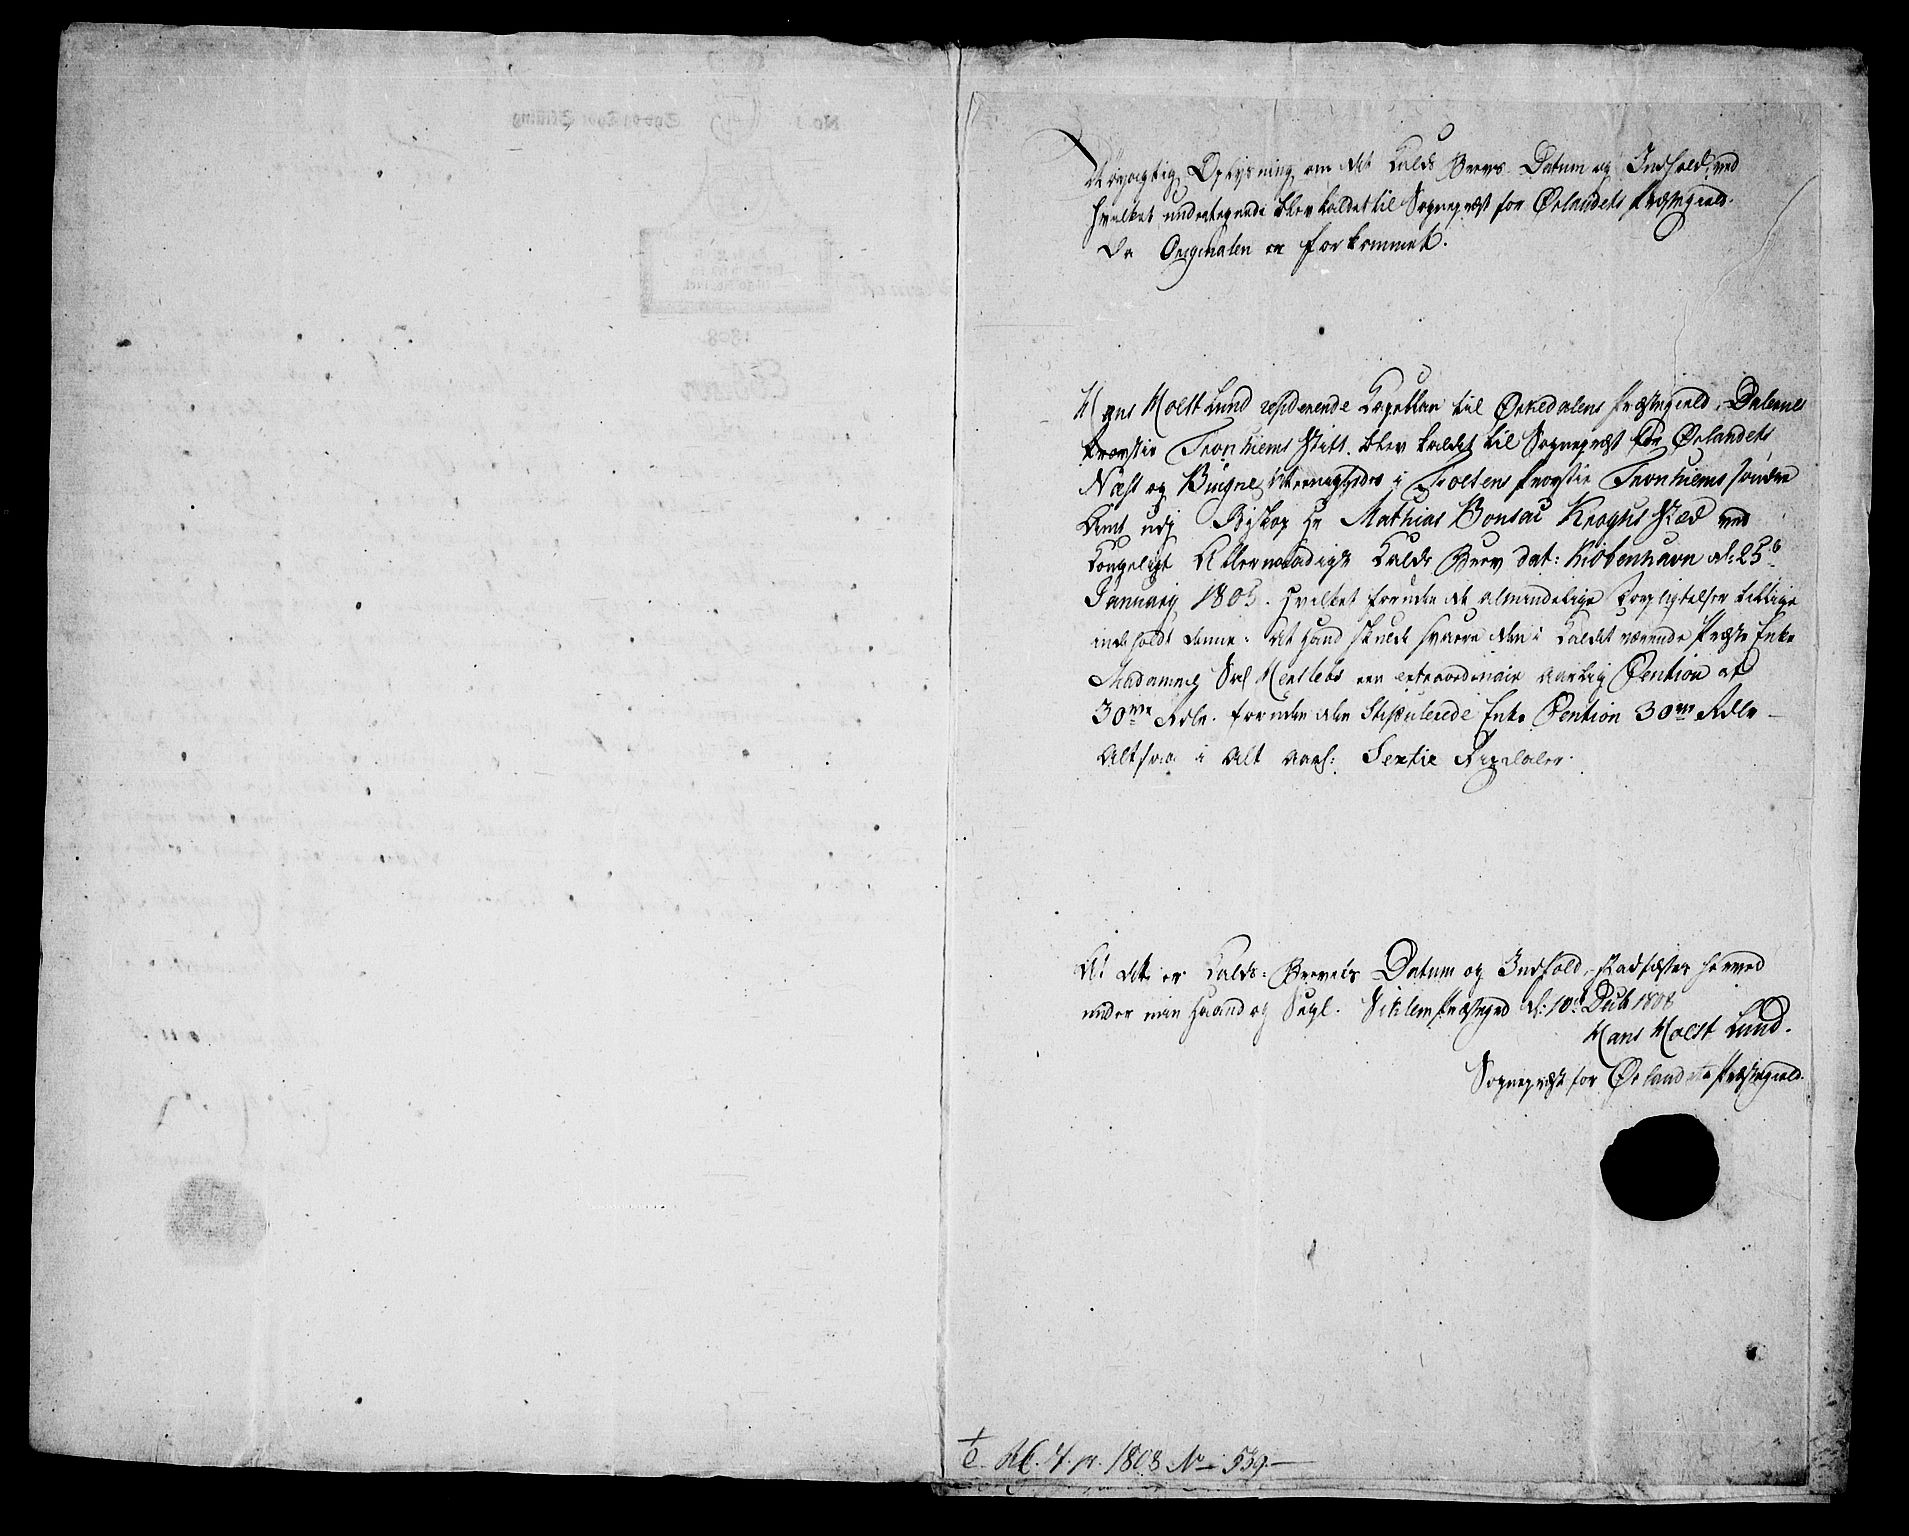 Nøyagtig Oplysning om det Kalds Brevs Datum og Indhold, ved
hvilket undertegnede blev kaldet til Sognepræst for Ørlandets Præstegield.
Da Originalen er forkommet.
Hans Holst Lund residerende Capellan til Ørkedalens Præstegield, Dalernes
Provstie Tronhiems Stift. blev kaldet til Sognepræst for Ørlandets
Næss og Biugns Meenigheder i Foesens Provstie Tronhiems søndre
Amt udj Biskop Hr Mathias Bonsac Kroghs Stæd ved
Kongeligt Allernaadigst Kalds Brev dat: Kiöbenhavn d: 25de
January 1805. hvilket foruden de almindelige Forpligtelser tillige
indeholdt denne: At hand skulde svare den i Kaldet værende Præste Enke
Madamme Sal Herslebs een extraordinair aarlig Pention af
30ve Rdlr. foruden den Stipulerede Enke Pention 30ve Rdlr
Altsaa i Alt aarl: Sextie Rixdaler.
At dette er Kalds-Brevets Datum og Indhold, stadfæstes herved
under min Haand og Segl. Præstegrd d: 10de Decb 1808
Hans Holst Lund.
Sognepræst for Ørlandets Præstegield.
R. C. 4. pr. 1808 No 539.
No 3.
1808